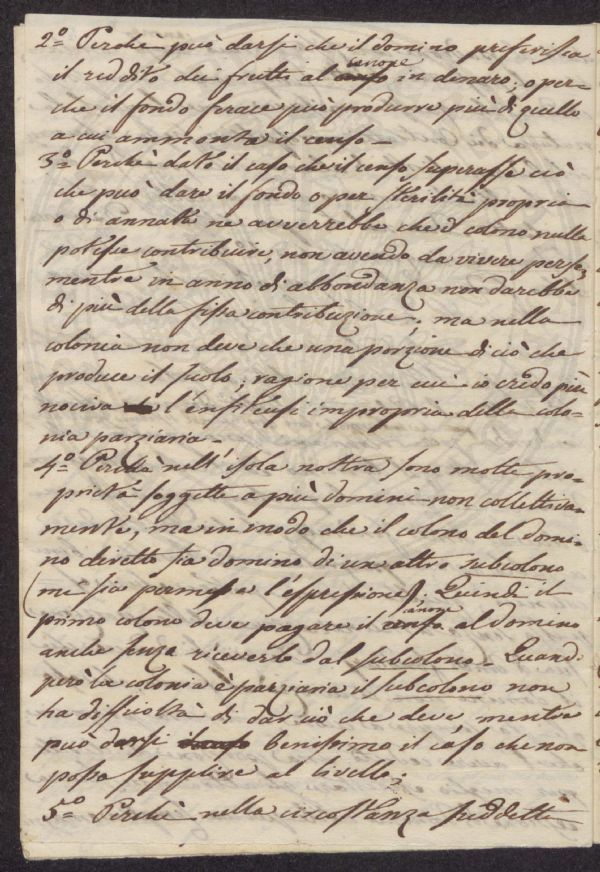 2.º Perchè può darsi che il domino preferisca
il reddito dei frutti al canone in denaro; o per-
che il fondo ferace può produrre più di quello
a cui ammonta il censo -
3.º Perchè dato il caso che il censo superasse ciò
che può dare il fondo o per sterilità propria
o di annata ne avverrebbe che il colono nulla
potesse contribuire, non avendo da vivere per se,
mentre in anno di abbondanza non darebbe
di più della fissa contribuzione; ma nella
colonia non deve che una porzione di ciò che
produce il suolo; ragione per cui io credo più
nociva l'enfiteusi impropria della colo-
nia parziaria -
4.º Perchè nell'isola nostra sono molte pro-
prietà soggette a più domini non collettiva-
mente, ma in modo che il colono del domi-
no diretto sia domino di un altro subcolono
(mi sia permessa l'espressione). Quindi il
primo colono deve pagare il canone al domino
anche senza riceverlo dal subcolono - Quand.
però la colonia è parziaria il subcolono non
ha difficoltà di dar ciò che deve mentre
può darsi benissimo il caso che non
possa supplire al livello;
5.º Perchè nella circostanza suddetta